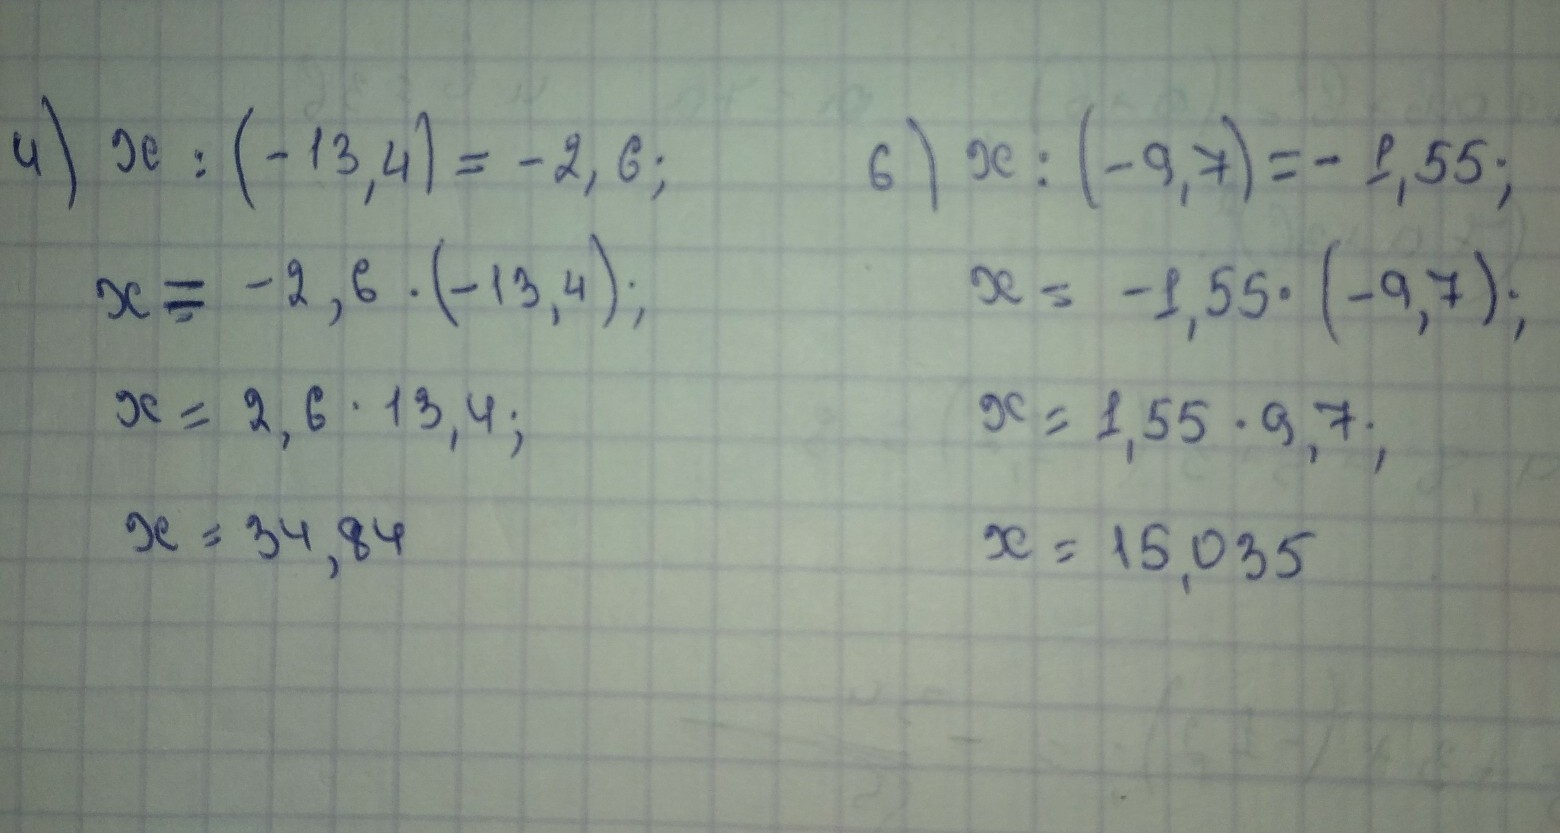 4) x : (-13,4) = -2,6;
x = -2,6 · (-13,4);
x = 2,6 · 13,4;
x = 34,84
6) x : (-9,7) = - 1,55;
x = -1,55 · (-9,7);
x = 1,55 · 9,7;
x = 15,035